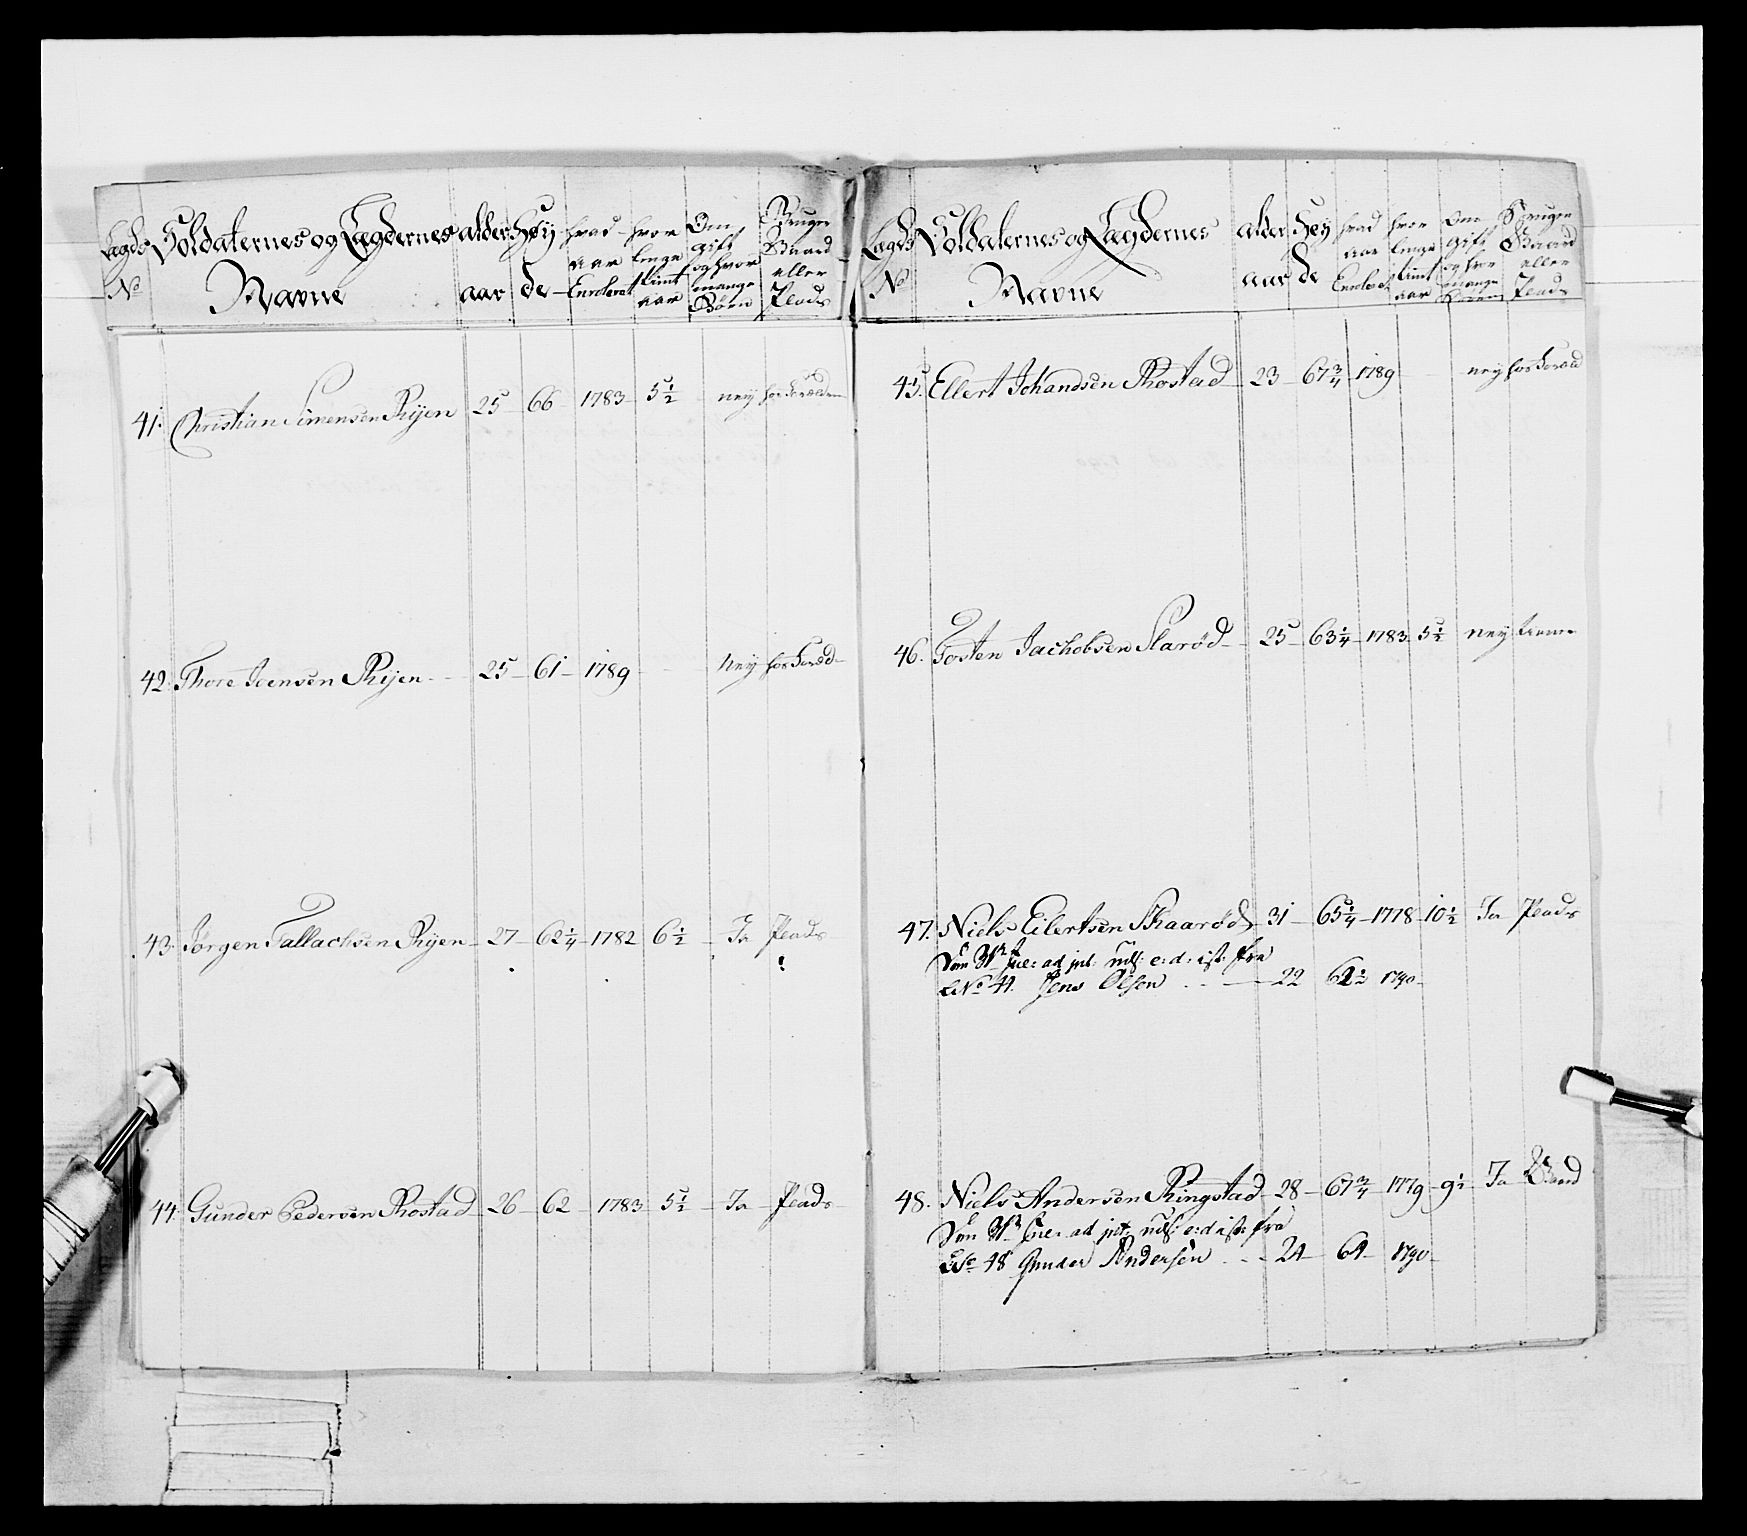 Lægds No
Soldaternes og Lægdernes Navne
alder aar
Høÿ de
hvad aar Enrolleret
hvor lenge tient aar
Om gift og hvor mange Børn
Bruger Gaard eller Plads
41. Christian Simensen Rijen 25 66 1783 5 1/2 neÿ hos
42. Thore Joensen Rijen 25 61 1789 neÿ hos
43. Jørgen Tallachsen Rijen 27 62 1/4 1782 6 1/2 Ja Plads
44. Gunder Pedersen Rostad 26 62 1783 5 1/2 Ja Plads
Lægds No
Soldaternes og Lægdernes Navne
alder aar
Høy de
hvad aar Enrolleret
hvor lenge tient aar
Om gift og hvor mange Børn
Bruger Gaard eller Plads
45. Ellert Johandsen Rostad 23 67 3/4 1789 neÿ hos
46. Tosten Jachobsen Slarød 25 63 1/4 1783 5 1/2 neÿ
47. Niels Eilertsen Skaarød 31 65 1/4 1778 10 1/2 Ja Plads
fra
No 4. Jens Olsen 22 62 1/2 1790
48. Niels Andersen Ringstad 28 67 3/4 1779 9 1/2 Ja Gaard
fra
No 48 Gunder Andersen 24 64 1790